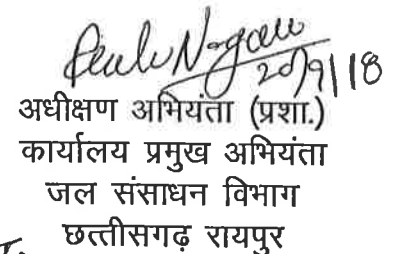 20/9/18
अधीक्षण अभियंता (प्रशा.)
कार्यालय प्रमुख अभियंता
जल संसाधन विभाग
छत्तीसगढ़ रायपुर